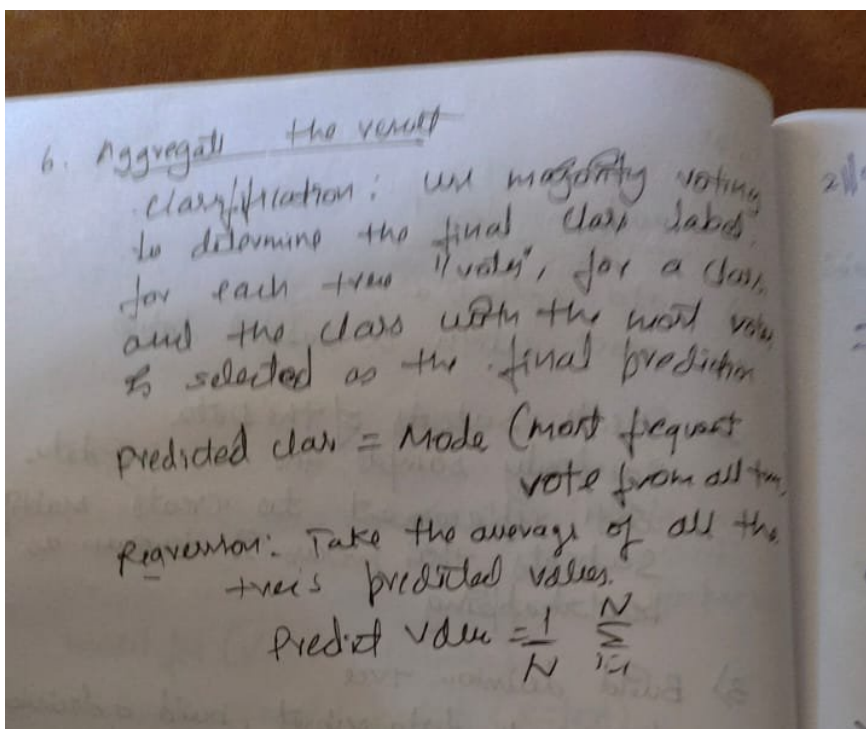 6. Aggregate the result
Classification: use majority voting
to determine the final class label.
for each tree "votes", for a class,
and the class with the most votes
is selected as the final prediction
predicted class = Mode (most frequent
vote from all trees
Regression: Take the average of all the
tree's predicted values.
Predict value = 1/N Σ i=1 N